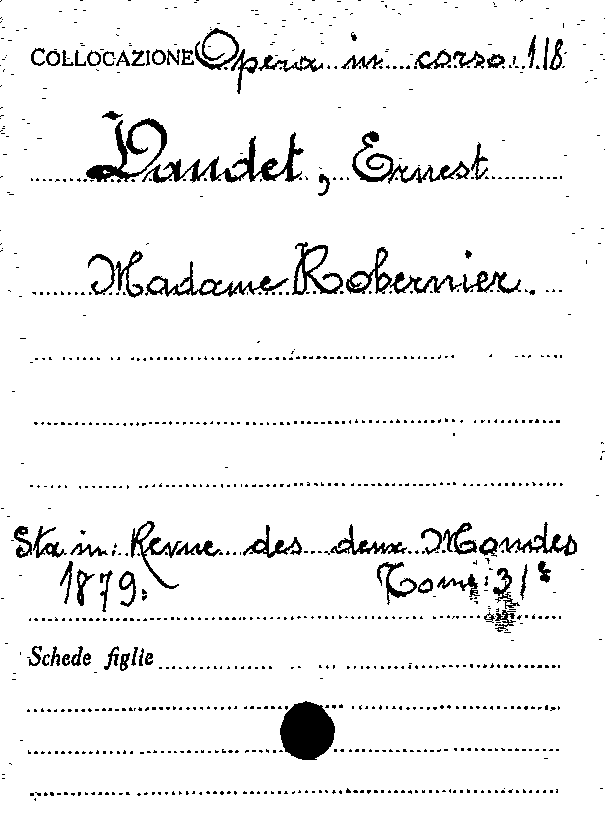 COLLOCAZIONE Opera in corso 118
Daudet, Ernest
Madame Robernier.
Sta in: Revue des deux Mondes
1879. Tome 31
Schede figlie